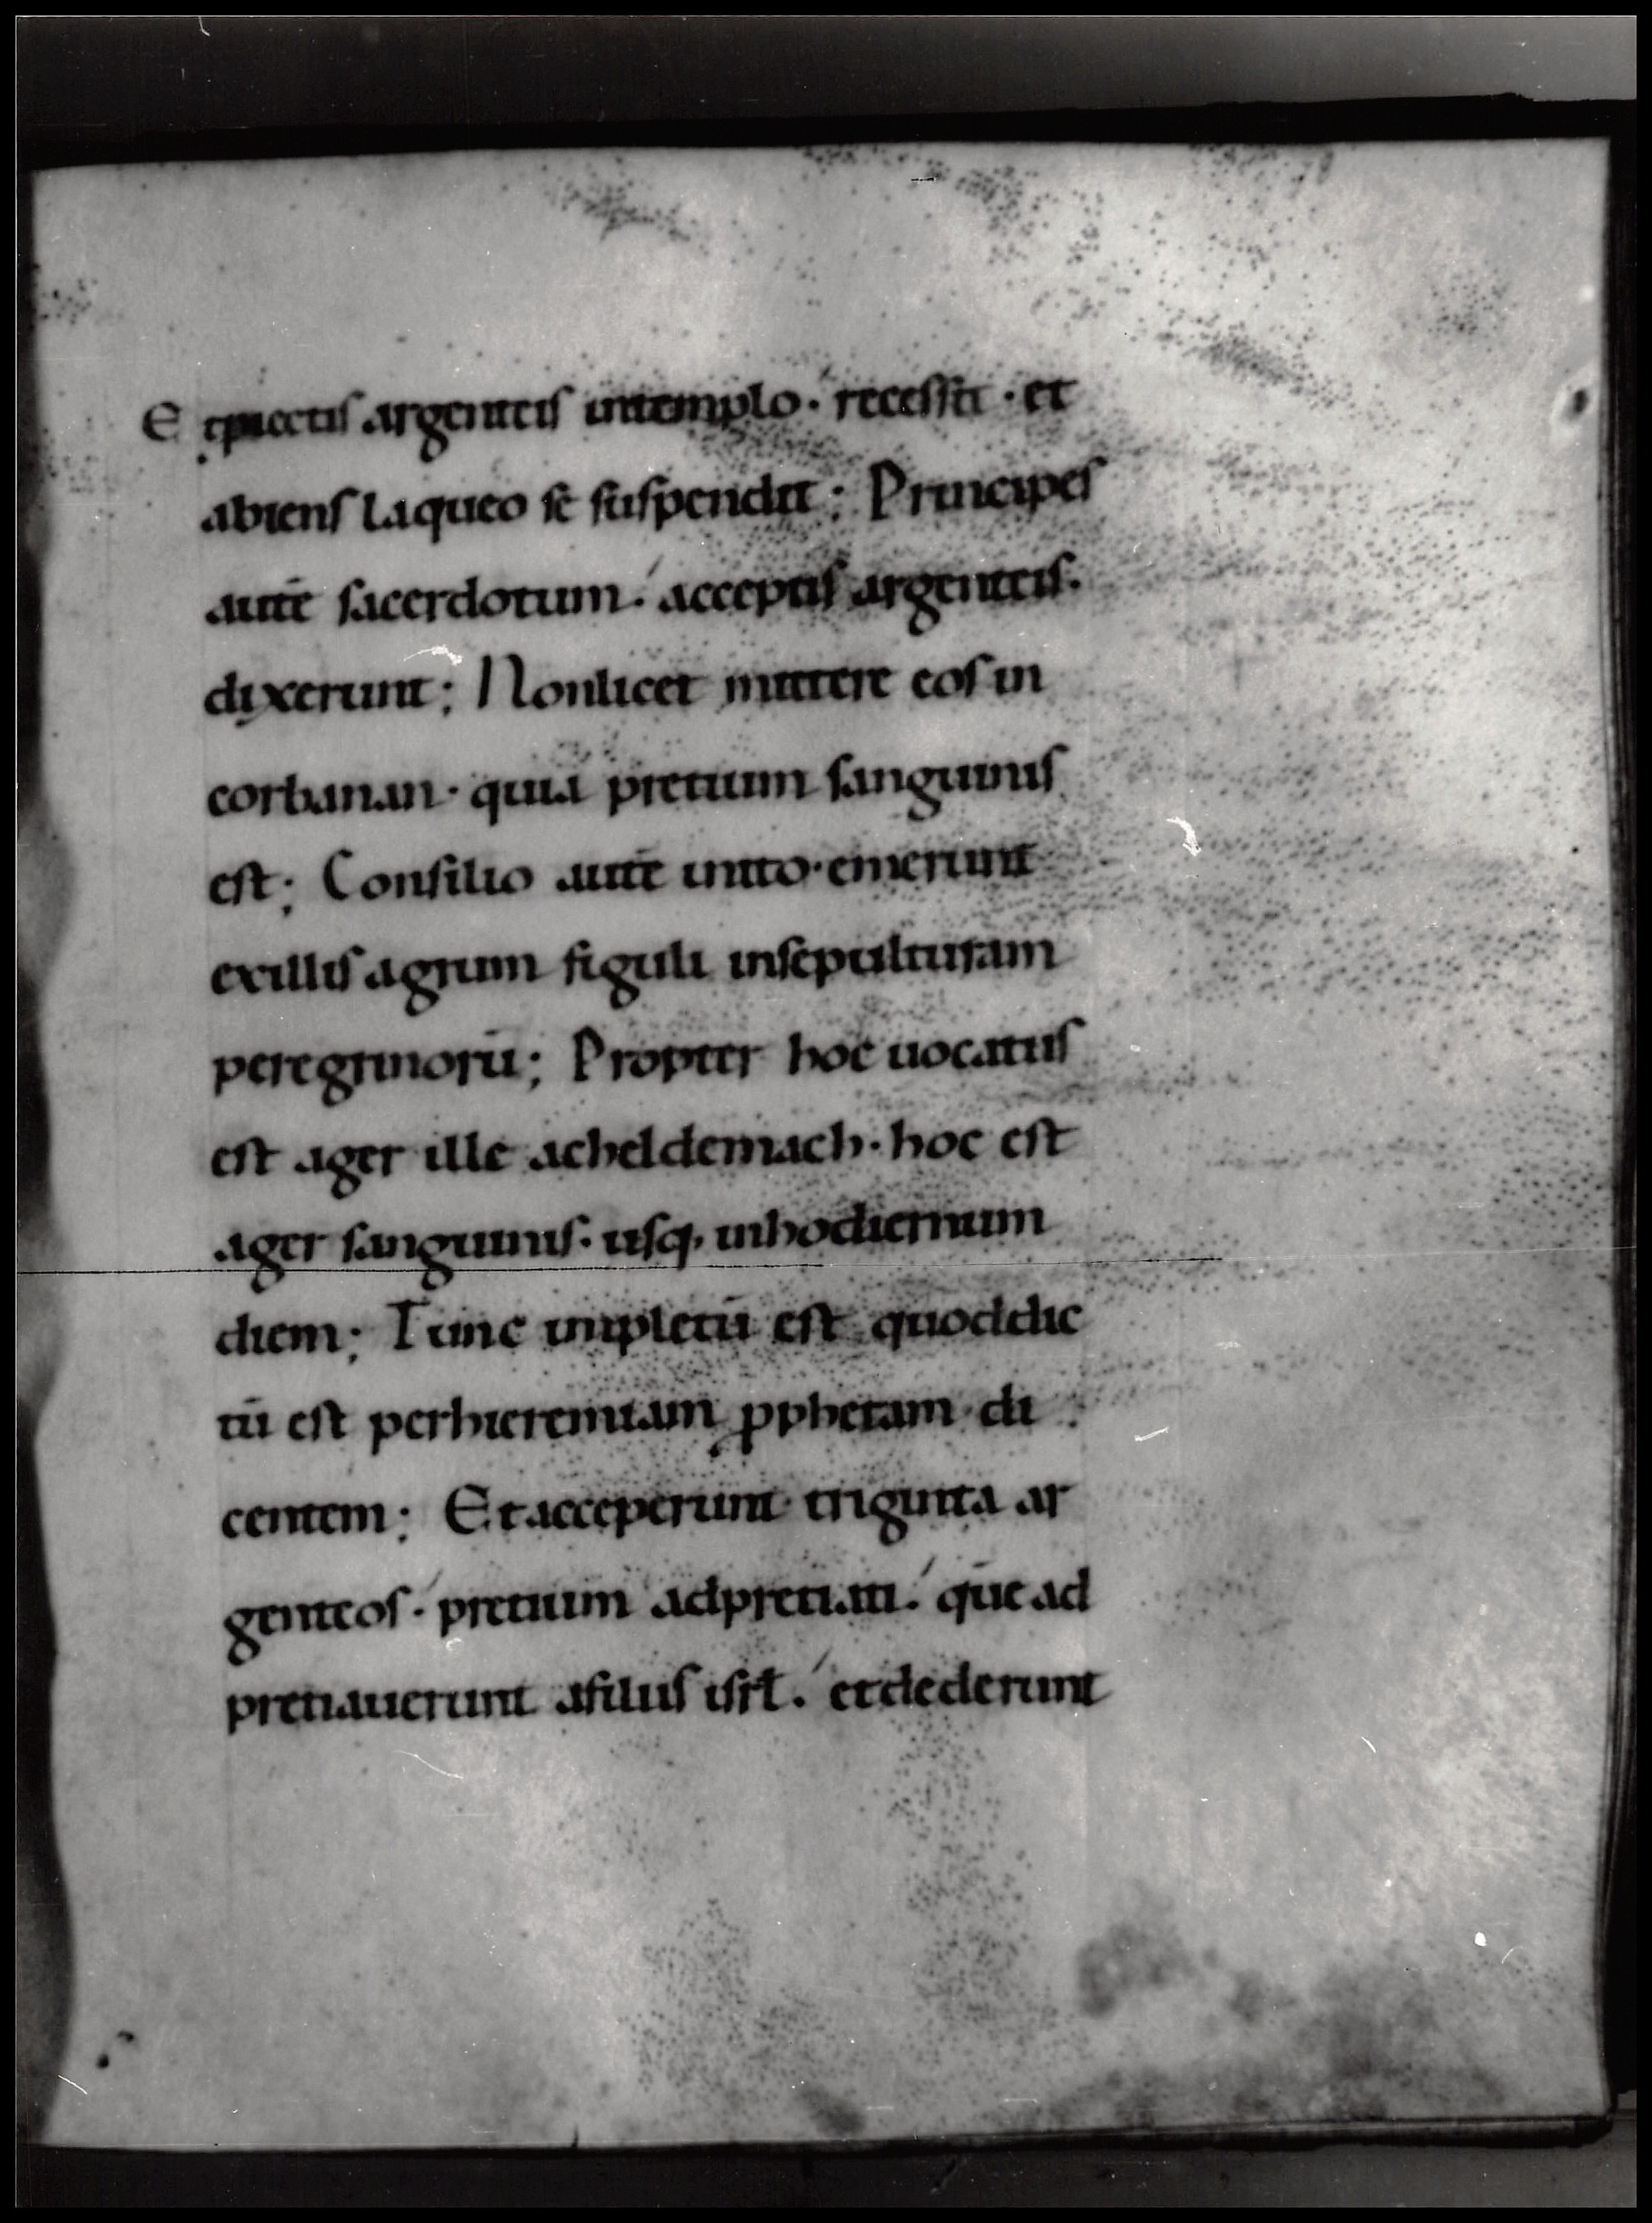 E tpiectis argenteis intemplo· recessit · et
abiens laqueo se suspendit ; Principes
autē sacerdotum· acceptis argenteis·
dixerunt ; Nonlicet mittere eos in
corbanan · quia pretium sanguinis
est ; Consilio autē inito · emerunt
exillis agrum figuli insepulturam
peregrinorū ; Propter hoc uocatus
est ager ille acheldemach · hoc est
ager sanguinis · usq; inhodiernum
diem ; Tunc impletū est quoddic
tū est perhieremiam ꝓphetam di
centem ; Et acceperunt triginta ar
genteos · pretium adpretiati · quē ad
pretiauerunt afiliis isrł · etdederunt